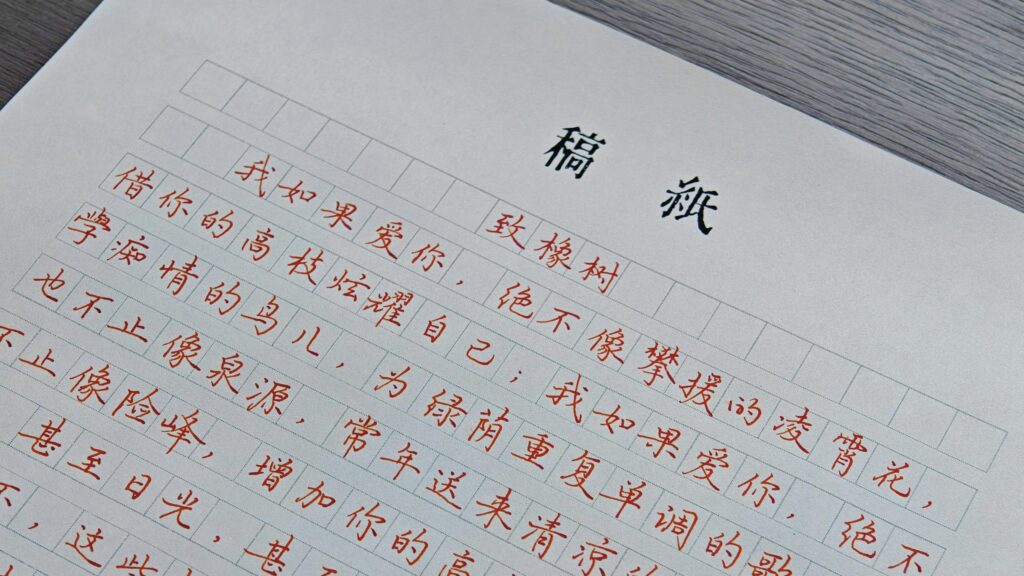 稿紙
致橡树
我如果爱你，绝不像攀援的凌霄花，
借你的高枝炫耀自己；我如果爱你，绝不
學痴情的鸟儿，为绿荫重复单调的歌
也不止像泉源，常年送来清凉
不止像险峰，增加你的高
甚至日光，甚
不，这些